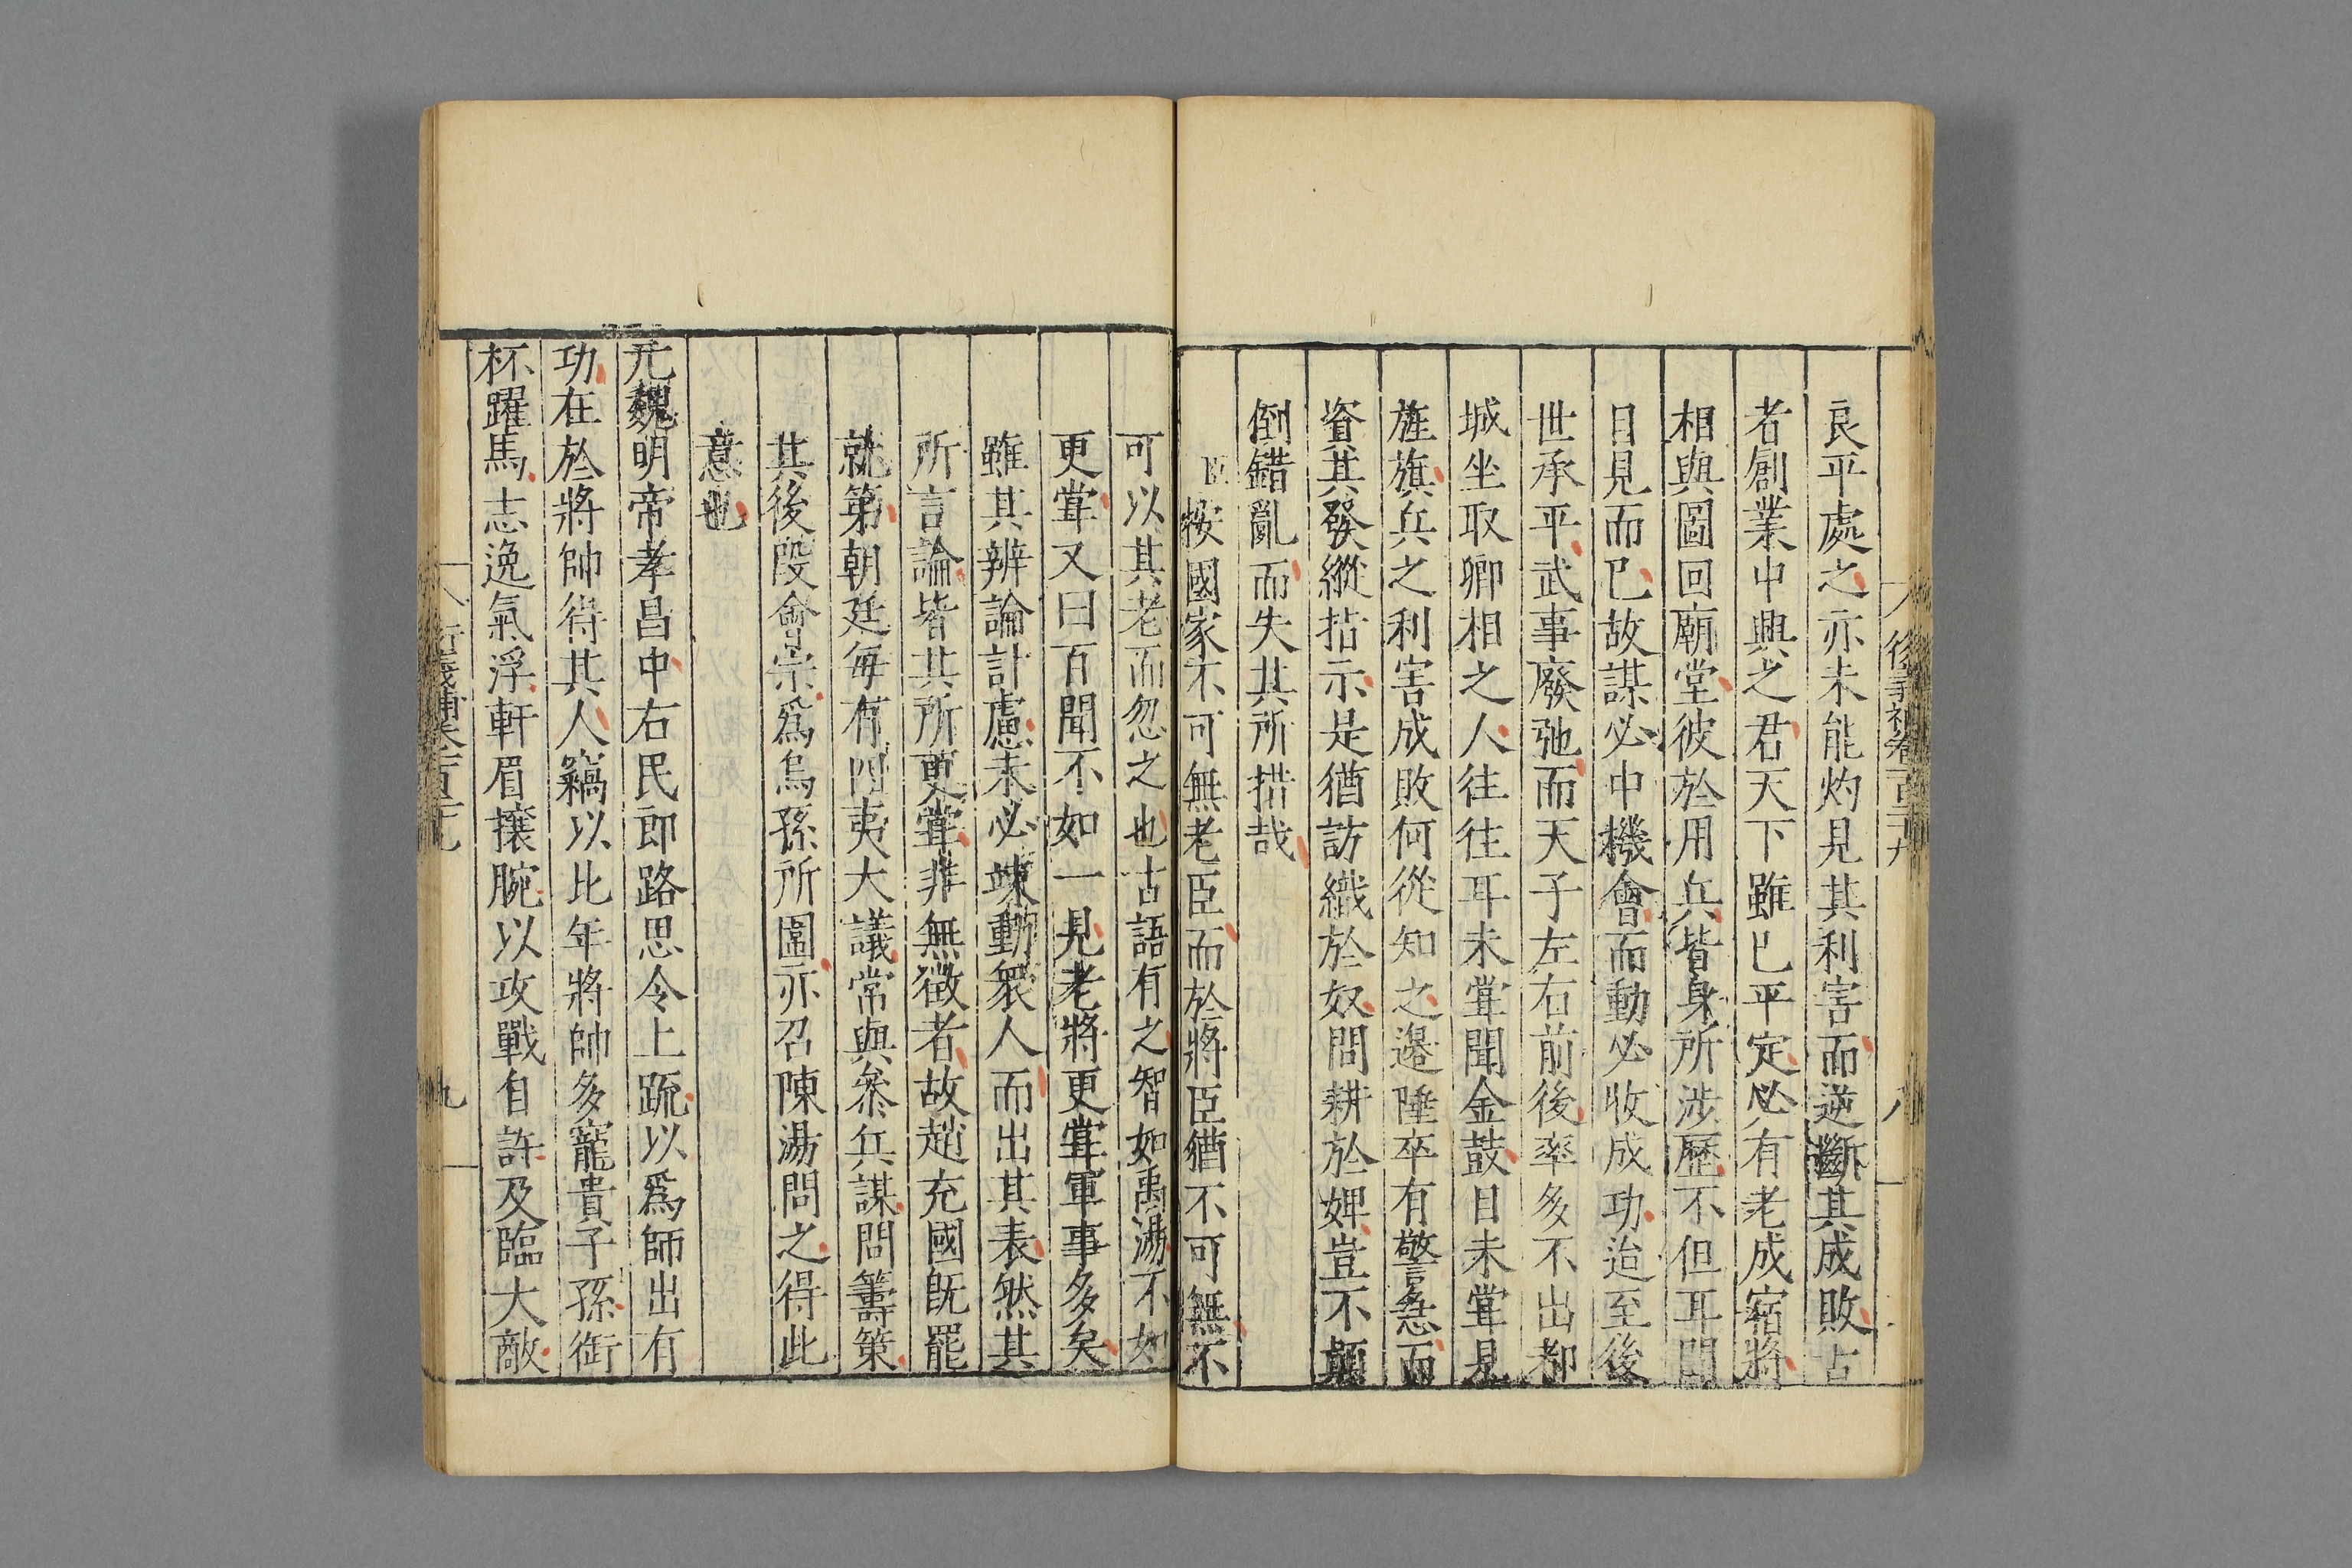 良平處之亦未能灼見其利害而逆斷其成敗古
者創業中興之君天下雖已平定必有老成宿將
相與圖回廟堂彼於用兵皆身所涉歷不但耳聞
目見而已故謀必中機會而動必收成功迨至後
世承平武事廢弛而天子左右前後率多不出都
城坐取卿相之人往往耳未甞聞金鼓目未甞見
旌旗兵之利害成敗何從知之邊陲卒有警急而
資其發縱指示是猶訪織於奴問耕於婢豈不顛
倒錯亂而失其所措哉
臣按國家不可無老臣而於將臣猶不可無不
可以其老而忽之也古語有之智如禹湯不如
更甞又曰百聞不如一見老將更甞軍事多矣
雖其辨論計慮未必竦動衆人而出其表然其
所言論皆其所更甞非無徵者故趙充國旣罷
就第朝廷每有四夷大議常與叅兵謀問籌策
其後段會宗爲烏孫所圍亦召陳湯問之得此
意也
元魏明帝孝昌中右民郎路思令上疏以爲師出有
功在於將帥得其人竊以比年將帥多寵貴子孫銜
杯躍馬志逸氣浮軒眉攘腕以攻戰自許及臨大敵
九